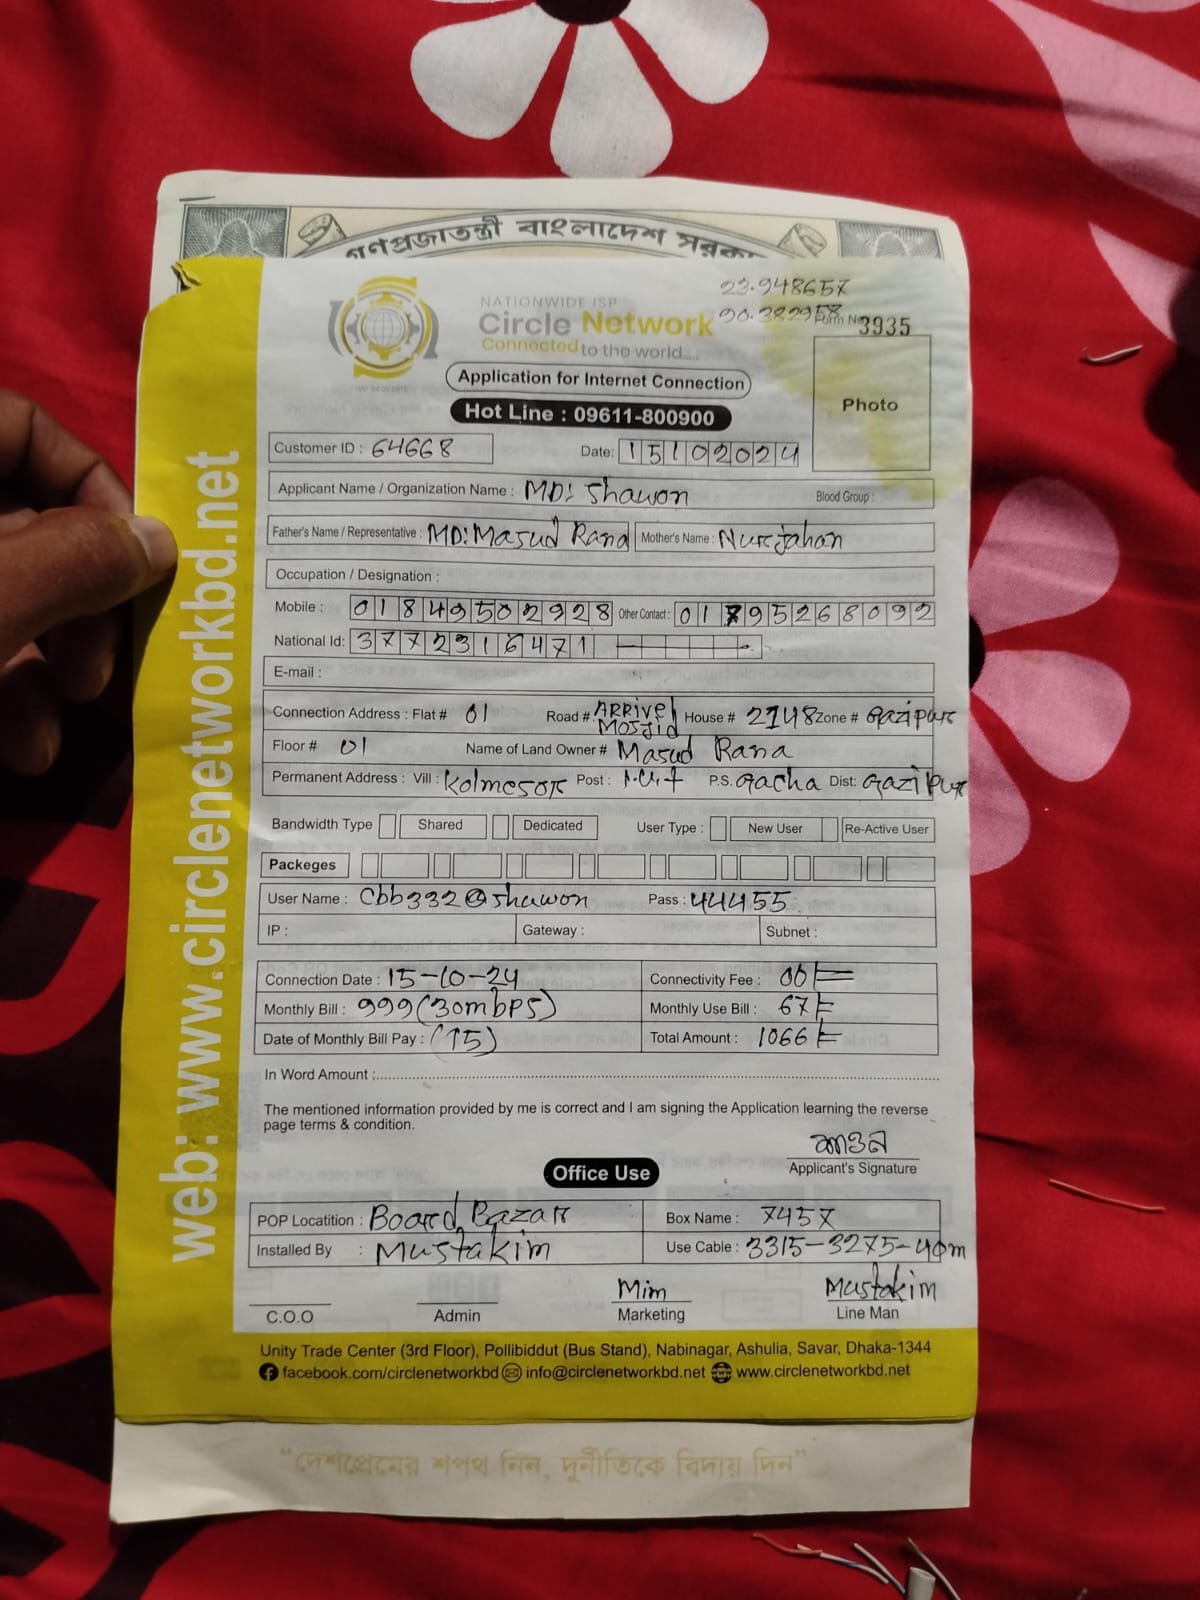 গণপ্রজাতন্ত্রী বাংলাদেশ সরকা
23.948657
90.382958
NATIONWIDE ISP
Circle Network
Connected to the world....
Form No 3935
Application for Internet Connection
Photo
Hot Line : 09611-800900
Customer ID : 64668 Date: 15102024
Applicant Name / Organization Name : MD: Shawon Blood Group :
Father's Name / Representative : MD: Masud Rana Mother's Name : Nurjahan
Occupation / Designation :
Mobile : 01849502928 Other Contact : 01795268092
National Id: 3772316471
E-mail :
Connection Address : Flat # 01 Road # Mosjid House # 2148 Zone # Gazipur
Floor # 01 Name of Land Owner # Masud Rana
Permanent Address : Vill : Kolmesor Post : P.S. Gacha Dist: Gazipur
Bandwidth Type Shared Dedicated User Type : New User Re-Active User
Packeges
User Name : Cbb332@shawon Pass : 44455
IP : Gateway : Subnet :
Connection Date : 15-10-24 Connectivity Fee : 00/=
Monthly Bill : 999 (30mbps) Monthly Use Bill : 67/=
Date of Monthly Bill Pay : (15) Total Amount : 1066/=
In Word Amount :
The mentioned information provided by me is correct and I am signing the Application learning the reverse
page terms & condition.
শাওন
Applicant's Signature
Office Use
POP Locatition : Board Bazar Box Name : 7457
Installed By : Mustakim Use Cable : 3315-3275-40m
Mim Mustakim
C.O.O Admin Marketing Line Man
Unity Trade Center (3rd Floor), Pollibiddut (Bus Stand), Nabinagar, Ashulia, Savar, Dhaka-1344
facebook.com/circlenetworkbd info@circlenetworkbd.net www.circlenetworkbd.net
web: www.circlenetworkbd.net
“দেশপ্রেমের শপথ নিন, দুর্নীতিকে বিদায় দিন”